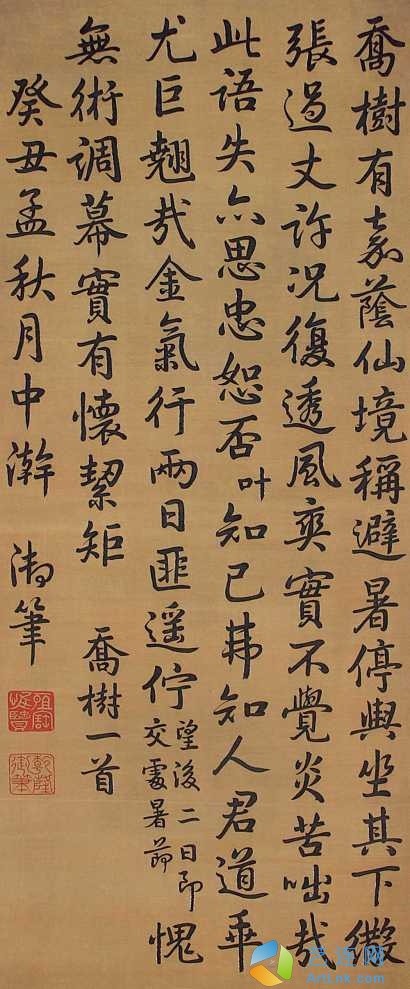 喬樹有嘉蔭仙境稱避暑停輿坐其下繖
張過丈許況復透風爽實不覺炎苦咄哉
此語失亦思忠恕否叶知己弗知人君道乖
尤巨翹哉金氣行兩日匪遥佇望後二日即交處暑節愧
無術調幕實有懷絜矩 喬樹一首
癸丑孟秋月中澣 御筆
乾隆御筆